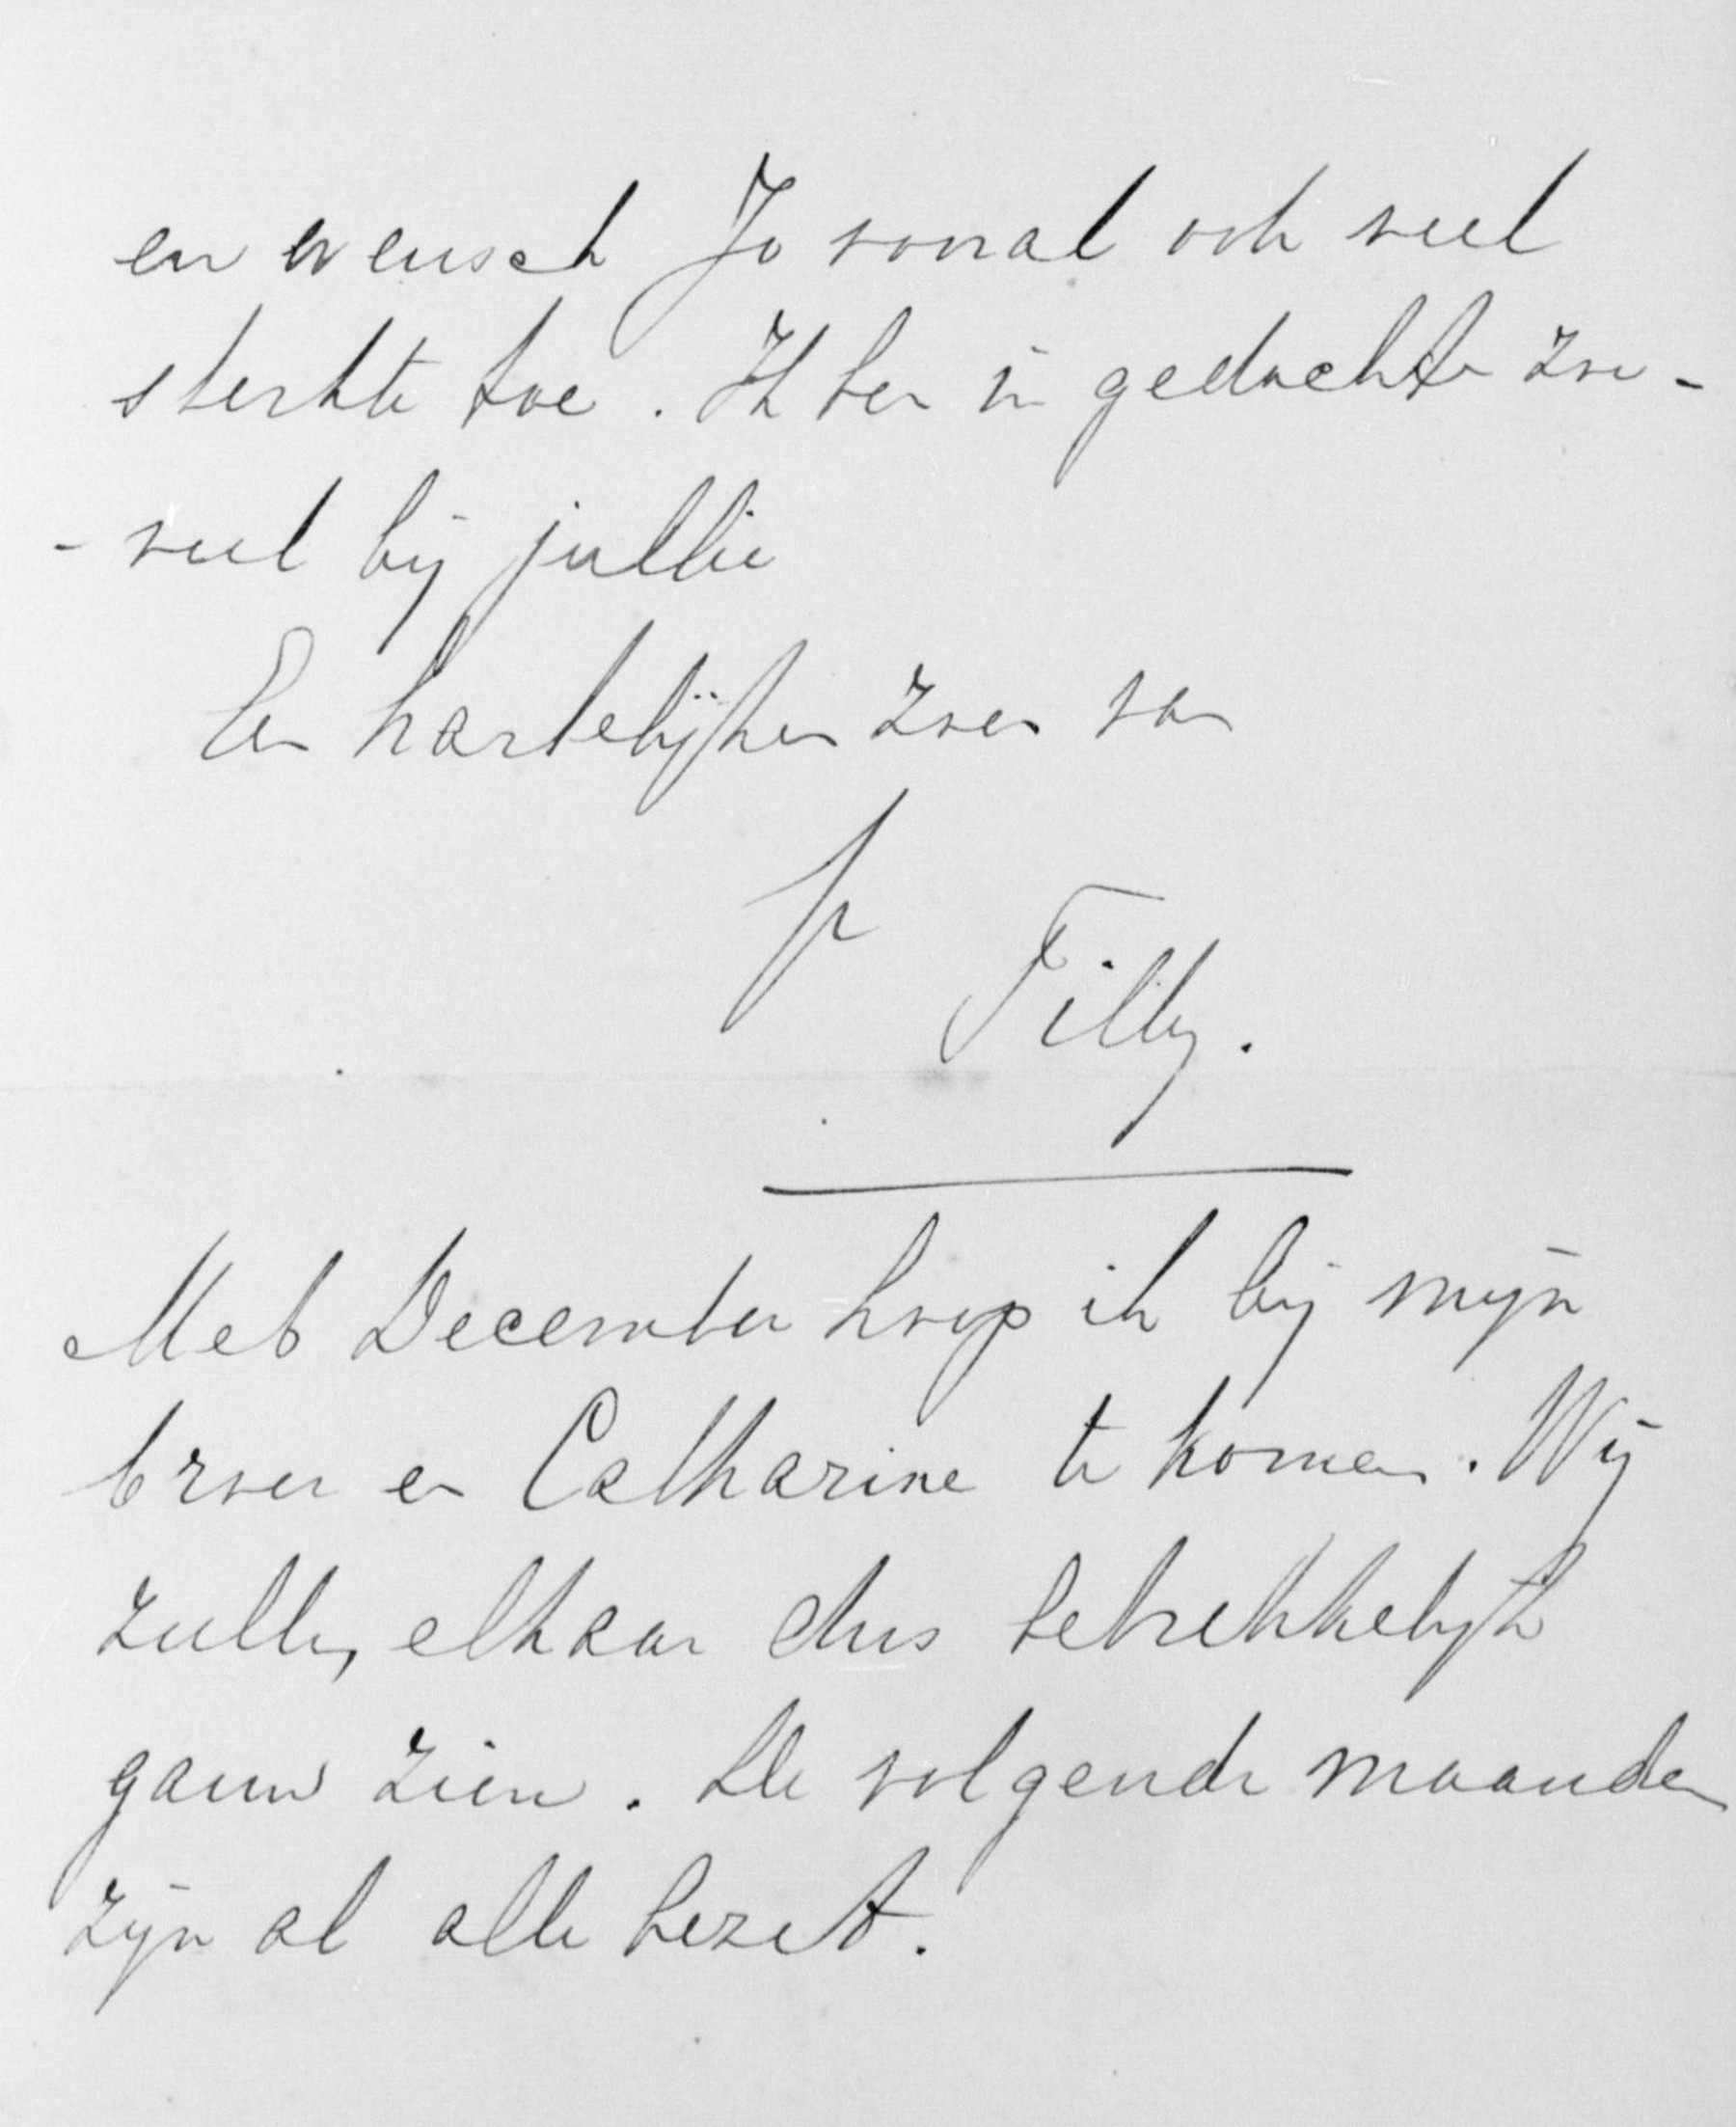 en wensch Jo vooral ook veel
sterkte toe. Ik ben in gedachte zoo-
- veel bij jullie
Een hartelijken zoen van
Je Tilly.
Met December hoop ik bij mijn
broer en Catharine te komen. Wij
zullen elkaar dus betrekkelijk
gauw zien. De volgende maanden
zijn al alle bezet.